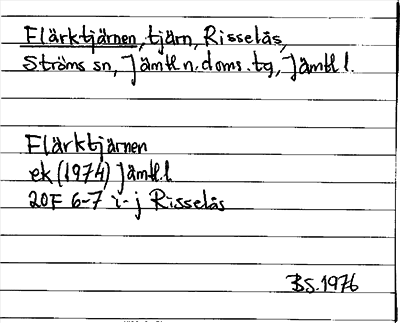 Flärktjärnen, tjärn, Risselås,
Ströms sn, Jämtl n. doms. tg, Jämtl l.
Flärktjärnen
ek (1974) Jämtl.l
20F 6-7 i-j Risselås
BS. 1976